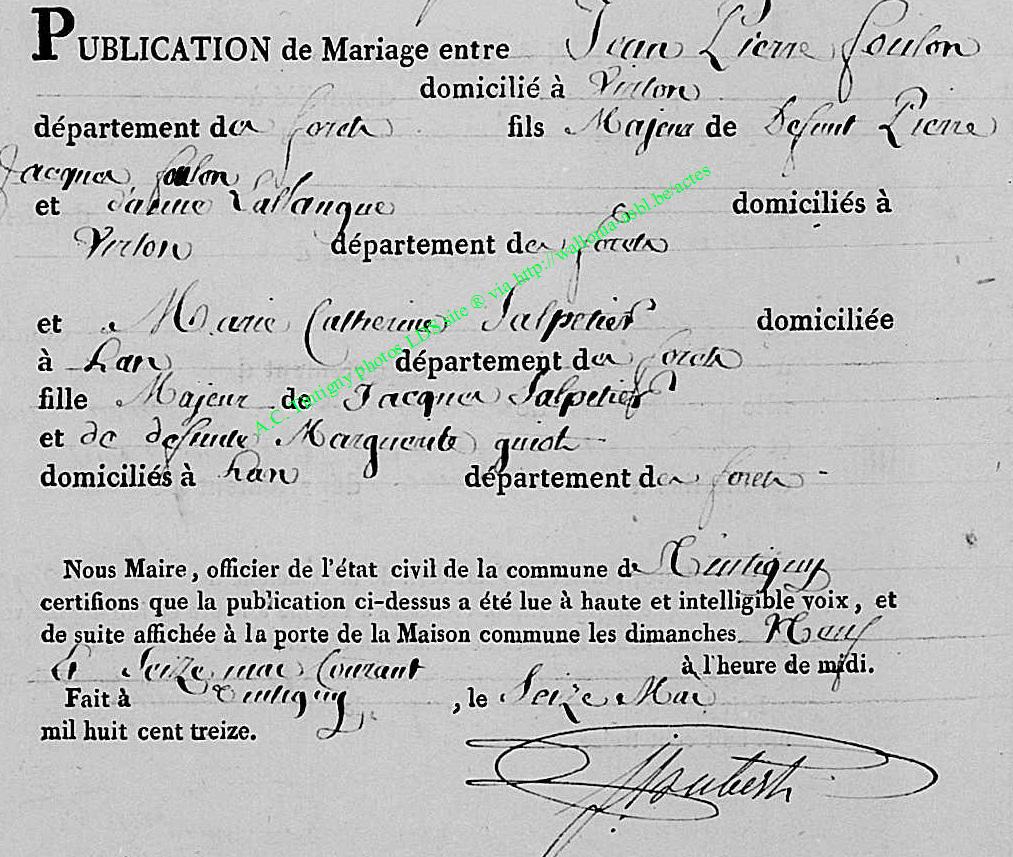 PUBLICATION de Mariage entre Jean Pierre foulon
domicilié à Virton
département des forets fils Majeur de Defunt Pierre
Jacques foulon
et Jeanne Lallangue domiciliés à
Virton département des forets
et Marie Catherine Salpetier domiciliée
à han département des forets
fille Majeur de Jacques Salpetier
et de defunte Marguerite guiot
domiciliés à han département des forets
Nous Maire, officier de l'état civil de la commune de Tintigny
certifions que la publication ci-dessus a été lue à haute et intelligible voix, et
de suite affichée à la porte de la Maison commune les dimanches Neuf
et Seize mai Courant à l'heure de midi.
Fait à Tintigny, le Seize Mai
mil huit cent treize.
A.C. Tintigny photos LDS site ® via http://wallonia-asbl.be/actes